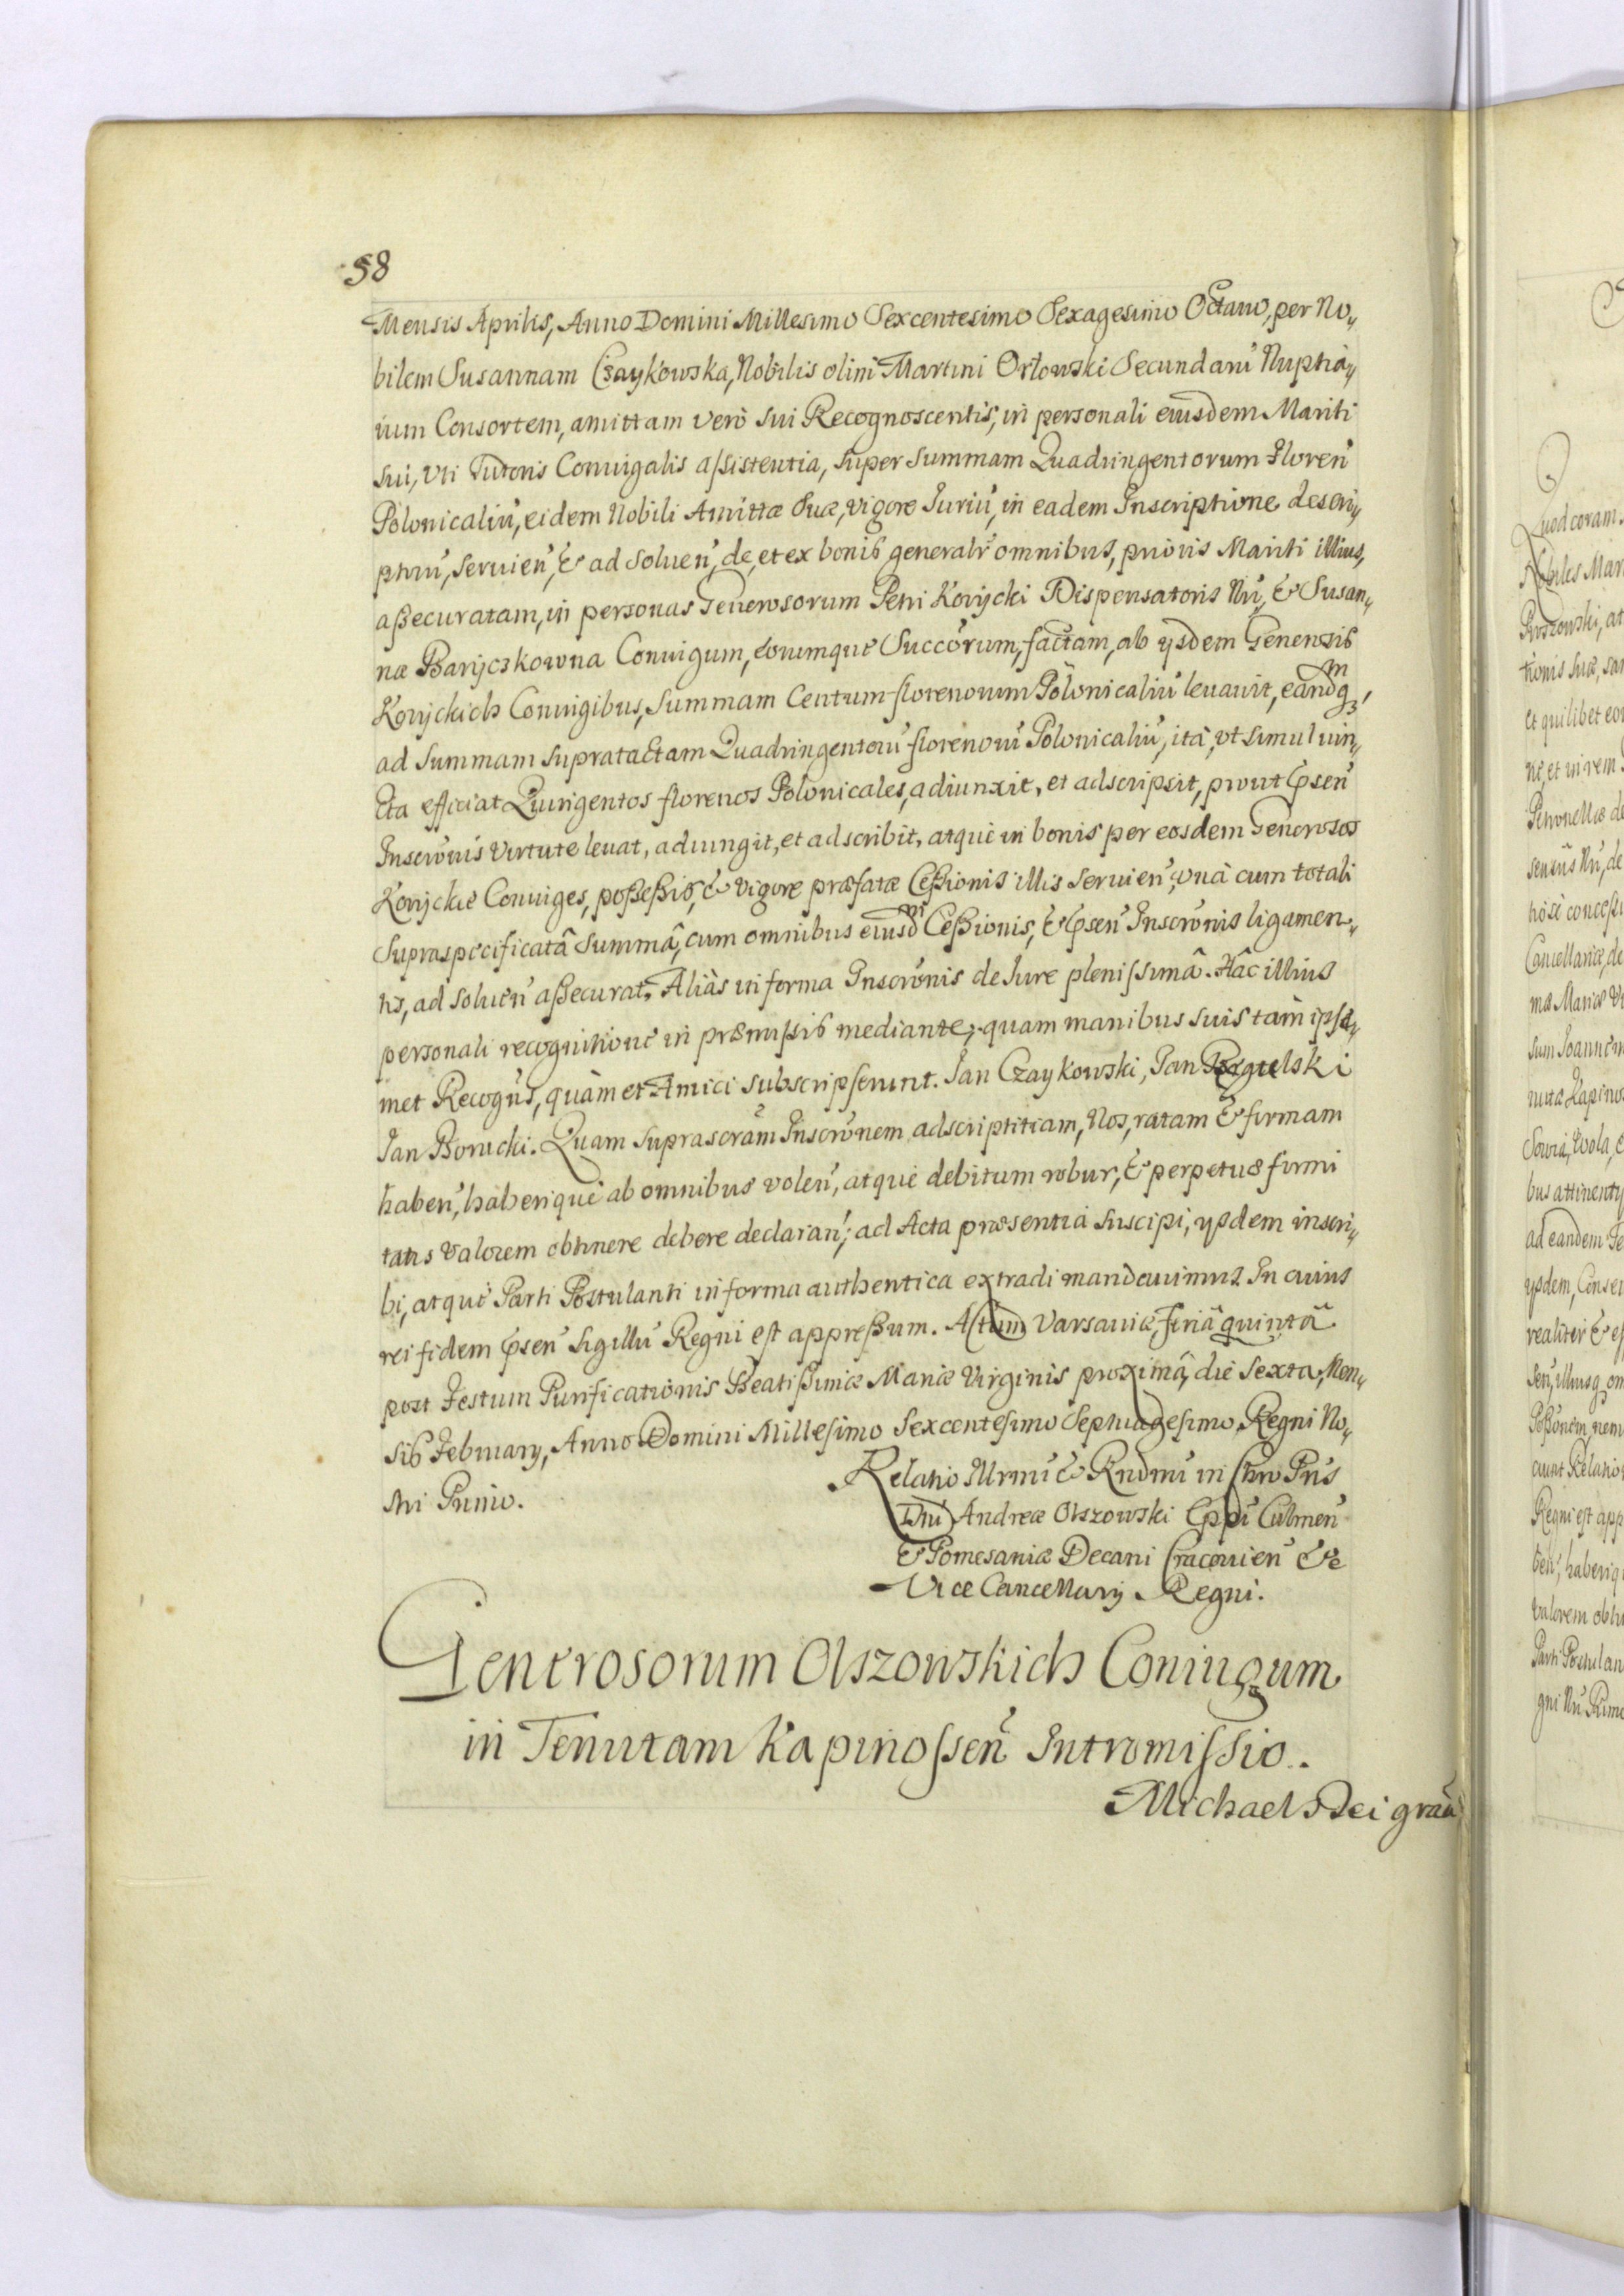 58
Mensis Aprilis, Anno Domini Millesimo Sexcentesimo Sexagesimo Octauo, per No„
bilem Susannam Czaykowska, Nobilis olim Martini Orłowski Secundarū Nuptia„
rum Consortem, amittam verò sui Recognoscentis, in personali eiusdem Mariti
sui, vti Tutoris Coniugalis assistentia, super summam Quadringentorum Floreñ
Polonicaliū, eidem Nobili Amittæ suæ, vigore Juriū, in eadem Inscriptione descri„
ptorū, seruieñ, & ad solueñ, de, et ex bonis generalr̃ omnibus, prioris Mariti illius,
aßecuratam, in personas Generosorum Petri Korycki Dispensatoris Nrĩ, & Susan„
næ Baryczkowna Coniugum, eorumque Succorum, factam, ab ysdem Generosis
Koryckich Coniugibus, summam Centum florenorum Polonicaliū leuauit, eandmq3,
ad summam supratactam Quadringentorū florenorū Polonicaliū, ità, vt simul iun„
cta efficiat Quingentos florenos Polonicales, adiunxit, et adscripsit, prout p̃señ
Inscrõnis virtute leuat, adiungit, et adscribit, atque in bonis per eosdem Generosos
Koryckie Coniuges, poßeßis, & vigore præfatæ Ceßionis illis seruieñ, vnà cum totali
supraspecificatâ summâ, cum omnibus eiusdm Ceßionis, & p̃señ Inscrõnis ligamen„
tis, ad solueñ aßecurat, Aliàs in forma Inscrõnis de Jure plenissimâ. Hâc illius
personali recognitione in præmissis mediante, quam manibus suis tàm ipse„
met Recogñs, quàm et Amici subscripserunt. Jan Czaykowski, Jan
Jan Borucki. Quam suprascrãm Inscrõnem adscriptitiam, Nos, ratam & firmam
habeñ, haberique ab omnibus voleñ, atque debitum robur, & perpetuæ firmi
tatis valorem obtinere debere declarañ; ad Acta præsentia suscipi, ysdem inscri„
bi, atque Parti Postulanti in forma authentica extradi mandauimus. In cuius
rei fidem p̃señ sigillū Regni est appreßum. Actum Varsauiæ, feriâ quintâ
post Festum Purificationis Beatißimæ Mariæ Virginis proximâ, die sexta, Men„
sis February, Anno Domini Millesimo Sexcentesimo Septuagesimo, Regni No„
stri Primo.
Relatio Illrmi & Rndmi in Chro Pris
Dni Andreæ Olszowski Eppi Culmeñ
& Pomesaniæ Decani Cracouieñ &c
Vice Cancellary Regni.
Generosorum Olszowskich Coniugum
in Tenutam Kapinosseñ Intromissio.
Michael Dei grãa